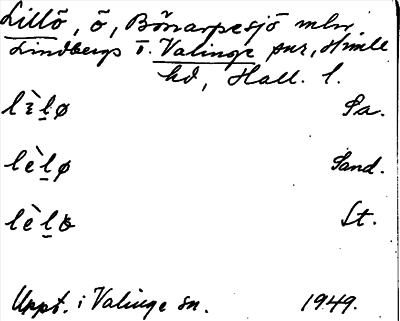 Lillö, ö, Bönarpesjö mln
Lindbergs o. Valinge snr, Himle
hd, Hall. l.
lìḻø Sa.
lèḻø Sand.
lèḻɵ St.
Uppt. i Valinge sn. 1949.